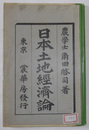 農學士角田啓司著
日本土地經濟論
東京 裳華房發行